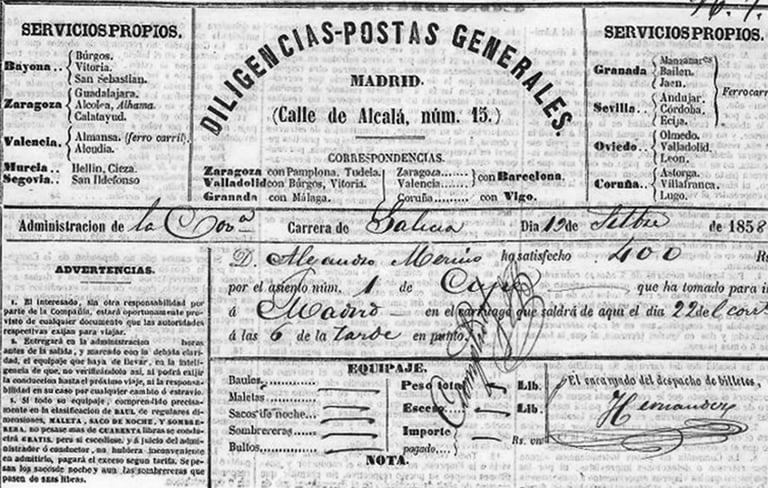 SERVICIOS PROPIOS.
Bayona.. Búrgos. Vitoria. San Sebastian.
Zaragoza Guadalajara. Alcolea, Alhama. Calatayud.
Valencia. Almansa. (ferro carril). Alcudia.
Murcia.. Hellin, Cieza.
Segovia.. San Ildefonso
DILIGENCIAS-POSTAS GENERALES.
MADRID.
(Calle de Alcalá, núm. 15.)
CORRESPONDENCIAS.
Zaragoza con Pamplona. Tudela.
Valladolid con Búrgos, Vitoria.
Granada con Málaga.
Zaragoza...... Valencia...... con Barcelona.
Coruña......... con Vigo.
SERVICIOS PROPIOS.
Granada Manzanares Bailen. Jaen.
Sevilla.. Andujar. Córdoba. Ecija.
Ferrocarr
Oviedo.. Olmedo. Valladolid. Leon.
Coruña.. Astorga. Villafranca. Lugo.
Administracion de la Corª Carrera de Galicia Dia 19 de Setbre de 1858
D. Alejandro Merino ha satisfecho 400 R
por el asiento núm. 1 de Cupé que ha tomado para i
á Madrid en el carruage que saldrá de aqui el dia 22 del corr
á las 6 de la tarde en punto.
ADVERTENCIAS.
1. El interesado, sin otra responsabilidad por
parte de la Compañía, estará oportunamente pro-
visto de cualquier documento que las autoridades
respectivas exijan para viajar.
2. Entregará en la administracion horas
antes de la salida, y marcado con la debida clari-
dad, el equipaje que haya de llevar, en la inteli-
gencia de que, no verificándolo asi, ni podrá exijir
la conduccion hasta el próximo viaje, ni la responsabi-
lidad en su caso por cualquier cambio ó estravio.
3. Si todo su equipaje, comprendido precisa-
mente en la clasificacion de BAUL de regulares di-
mensiones, MALETA, SACO DE NOCHE, Y SOMBRE-
RERA, no pesase mas de CUARENTA libras se condu-
cirá GRATIS, pero si escediese, y á juicio del admi-
nistrador ó conductor, no hubiera inconveniente
en admitirlo, pagará el exceso segun tarifa. Se pe-
san los sacos de noche y aun las sombrereras que
pasen de seis libras.
EQUIPAJE.
Baules............
Maletas ............
Sacos de noche...
Sombrereras......
Bultos............
Peso total Lib.
Esceso Lib.
Importe pagado.... Rs. vn
NOTA.
El encargado del despacho de billetes,
Hernandez